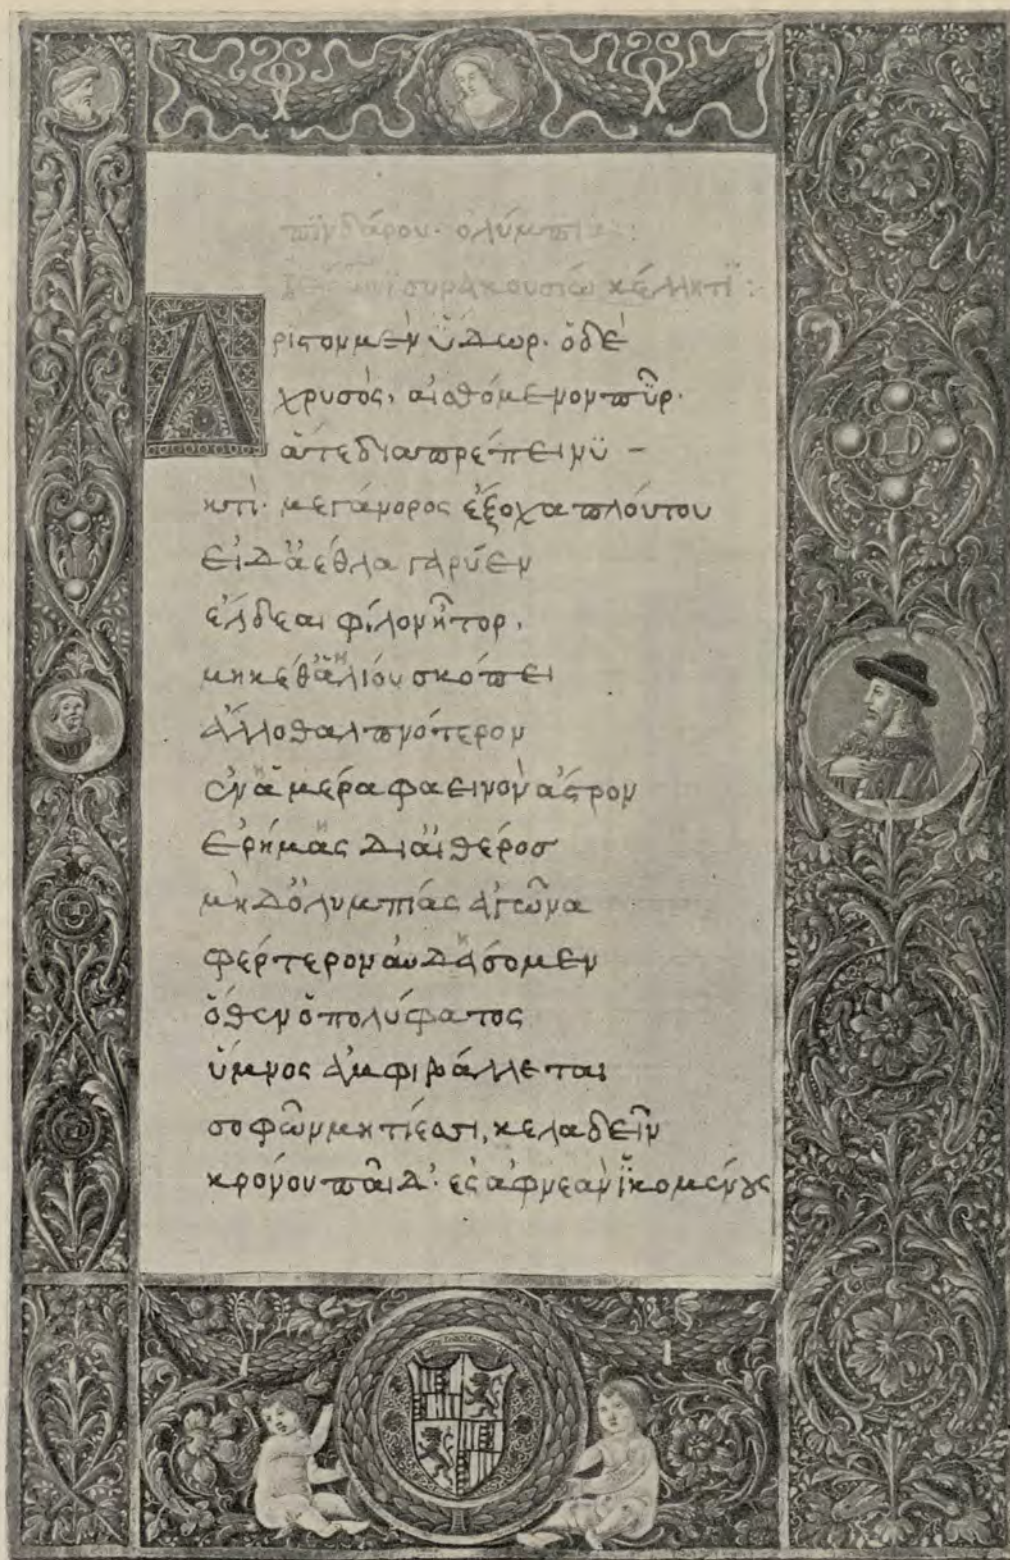 πϊνδάρου· ὀλύμπια:
συρακουσίω κέλητϊ:
Αριστονμὲν ὕδωρ. ὁδὲ
χρυσὸς, αἰθόμενονπῦρ.
ἅτεδιαπρέπεινϋ –
κτὶ· μεγάνορος ἔξοχαπλούτου
εἰδ᾽ἄεθλα γαρύεν
ἔλδεαι φίλονἦτορ,
μηκέθ᾽ἁλίουσκόπει
ἄλλοθαλπνότερον
ἐνἁμέραφαεινὸνἄστρον
ἐρήμας δι᾽αἰθέρος
μηδ᾽ὀλυμπίας ἀγῶνα
φέρτεροναὐδάσομεν
ὅθενὁπολύφατος
ὕμνος ἀμφιβάλλεται
σοφῶνμητίεσσι, κελαδεῖν
κρόνουπαῖδ᾽ ἐςἀφνεὰνἱκομένους